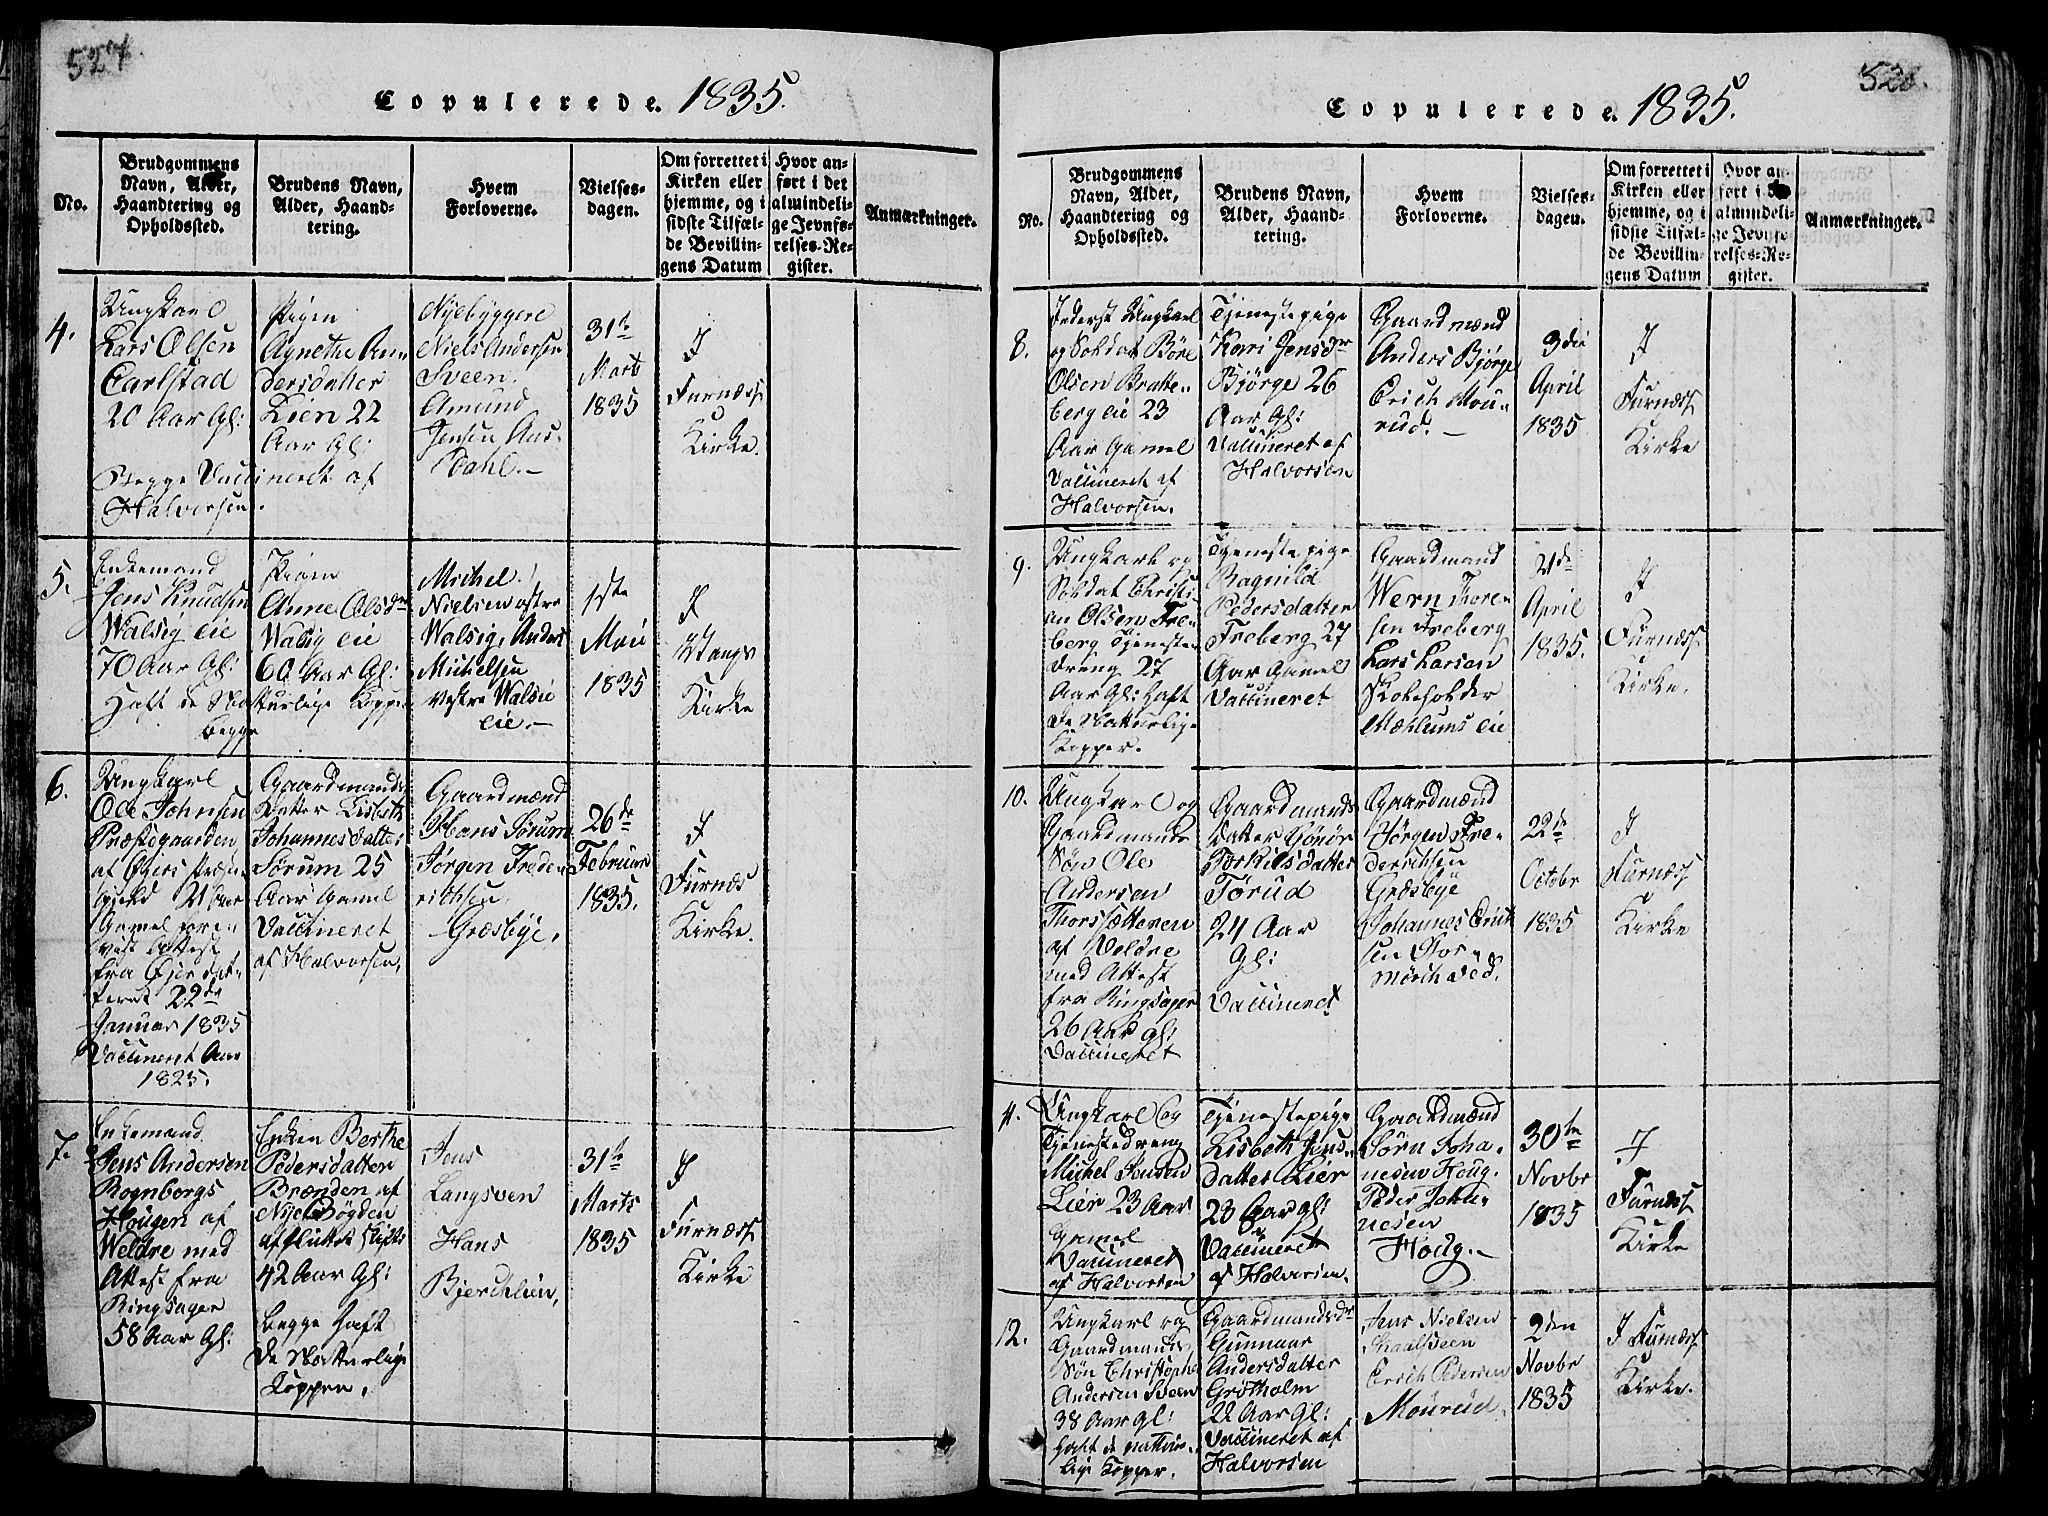 527.
Copulerede. 1835.
No.
Brudgommens
Navn, Alder,
Haandtering og
Opholdssted.
Brudens Navn,
Alder, Haand-
tering.
Hvem
Forloverne.
Vielses-
dagen.
Om forrettet i
Kirken eller
hjemme, og i
sidste Tilfæl-
de Bevillin-
gens Datum
Hvor an-
ført i det
almindeli-
ge Jevnfø-
relses-Re-
gister.
Anmærkninger.
4.
Ungkarl
Lars Olsen
Carlstad
20 Aar Gl:
Begge Vaccineret af
Halvorsen.
Pigen
Agnethe An-
dersdatter
Lien 22
Aar Gl:
Nyebyggere
Niels Andersen
Sveen.
Amund
Jensen Aus-
Dahl.-
31te
Marts
1835
I
Furnæss
Kirke.
5.
Enkemand
Jens Knudsen
Walsig eie
70 Aar Gl:
Haft de Naturlige Kopper
begge
Pigen
Anne Olsdr
Walsig eie
60 Aar Gl:
Michel
Nielsen østre
Walsig, Anders
Michelsen
vestre Walsie
eie.-
1ste
Mai
1835
I
Vangs
Kirke
6.
Ungkarl
Ole Johnsen
Præstegaarden
af Eiers Præste-
gield 21 Aar
Gamel fore-
vist Attest
fra Eier dat-
teret 22de
Januar 1835
Vaccineret Aar
1825.
Gaardmands
Datter Lisbeth
Johannesdatter
Sørum 25
Aar Gamel
Vaccineret
af Halvorsen,
Gaardmænd
Hans Sørum
Jørgen Frede-
richsen
Græsbye,
26de
Februar
1835.
I
Furnæs
Kirke.
7.
Enkemand
Jens Andersen
Rognborgs
Hougen af
Weldre med
Attest fra
Ringsager
58 Aar Gl:
Enken Berthe
Pedersdatter
Brænden af
Nye Bøgden
afsluttet Skifte
42 Aar Gl:
begge haft
de Natturlige
Kopper.
Jens
Langsven
Hans
Bjerchlien,
31te
Marts
1835
I
Furnæss
Kirke
528.
Copulerede. 1835.
No.
Brudgommens
Navn, Alder,
Haandtering og
Opholdssted.
Brudens Navn,
Alder, Haand-
tering.
Hvem
Forloverne.
Vielses-
dagen.
Om forrettet i
Kirken eller
hjemme, og i
sidste Tilfæl-
de Bevillin-
gens Datum
Hvor an-
ført i det
almindeli-
ge Jevnfø-
relses-Re-
gister.
Anmærkninger.
8.
Inderst Ungkarl
og Soldat Børe
Olsen Bratte-
berg eie 23
Aar Gamel
Vaccineret af
Halvorsen.
Tjenestepige
Kari Jensdr
Bjørge 26
Aar Gl:
Vaccineret af
Halvorsen
Gaardmænd
Anders Bjørge
Erich Mou-
rud.-
3die
April
1835
I
Furnæss
Kirke
9.
Ungkarl og
Soldat Christi-
an Olsen Fre-
berg Tjeneste-
dreng 27
Aar Gl: Haft
de Natturlige
Kopper.
Tjenestepige
Ragnild
Pedersdatter
Freberg 27
Aar Gamel
Vaccineret
Gaardmand
Wern Thore-
sen Freberg
Lars Larsen
Skoleholder
Mæhlums eie
21de
April
1835.
I
Furnæss
Kirke.
10.
Ungkarl og
Gaardmands
Søn Ole
Andersen
Thorssætteren
af Veldre
med Attest
fra Ringsager
26 Aar gl:
Vaccineret
Gaardmands
Datter Gønør
Torkilsdatter
Tørud
24 Aar
Gl:
Vaccineret
Gaardmænd
Jørgen Fre-
derichsen
Græsbye
Johannes Erich
sen Stor-
mørchved.
22de
Octobr
1835
I
Furnæss
Kirke
11.
Ungkarl og
Tjenestedreng
Michel Jensen
Lier 23 Aar
Gamel
Vaccineret
af Halvorsen
Tjenestepige
Lisbeth Jens-
datter Lier
23 Aar gl:
Vaccineret
af Halvorsen.
Gaardmænd
Sørn Joha-
nesen Houg.
Peder Joha-
nesen
Houg.-
30te
Novbr
1835
I
Furnæss
Kirke
12.
Ungkarl og
Gaardmands
Søn Christophe
Andersen Sveen
38 Aar gl:
Haft de nattur-
lige Kopper.
Gaardmandsdr
Gunnaar
Andersdatter
Grøtholm
22 Aar Gl:
Vaccineret af
Halvorsen
Jens Nielsen
Erich Pedersen
Mourud.
2den
Novbr
1835
I Furnæss
Kirke.